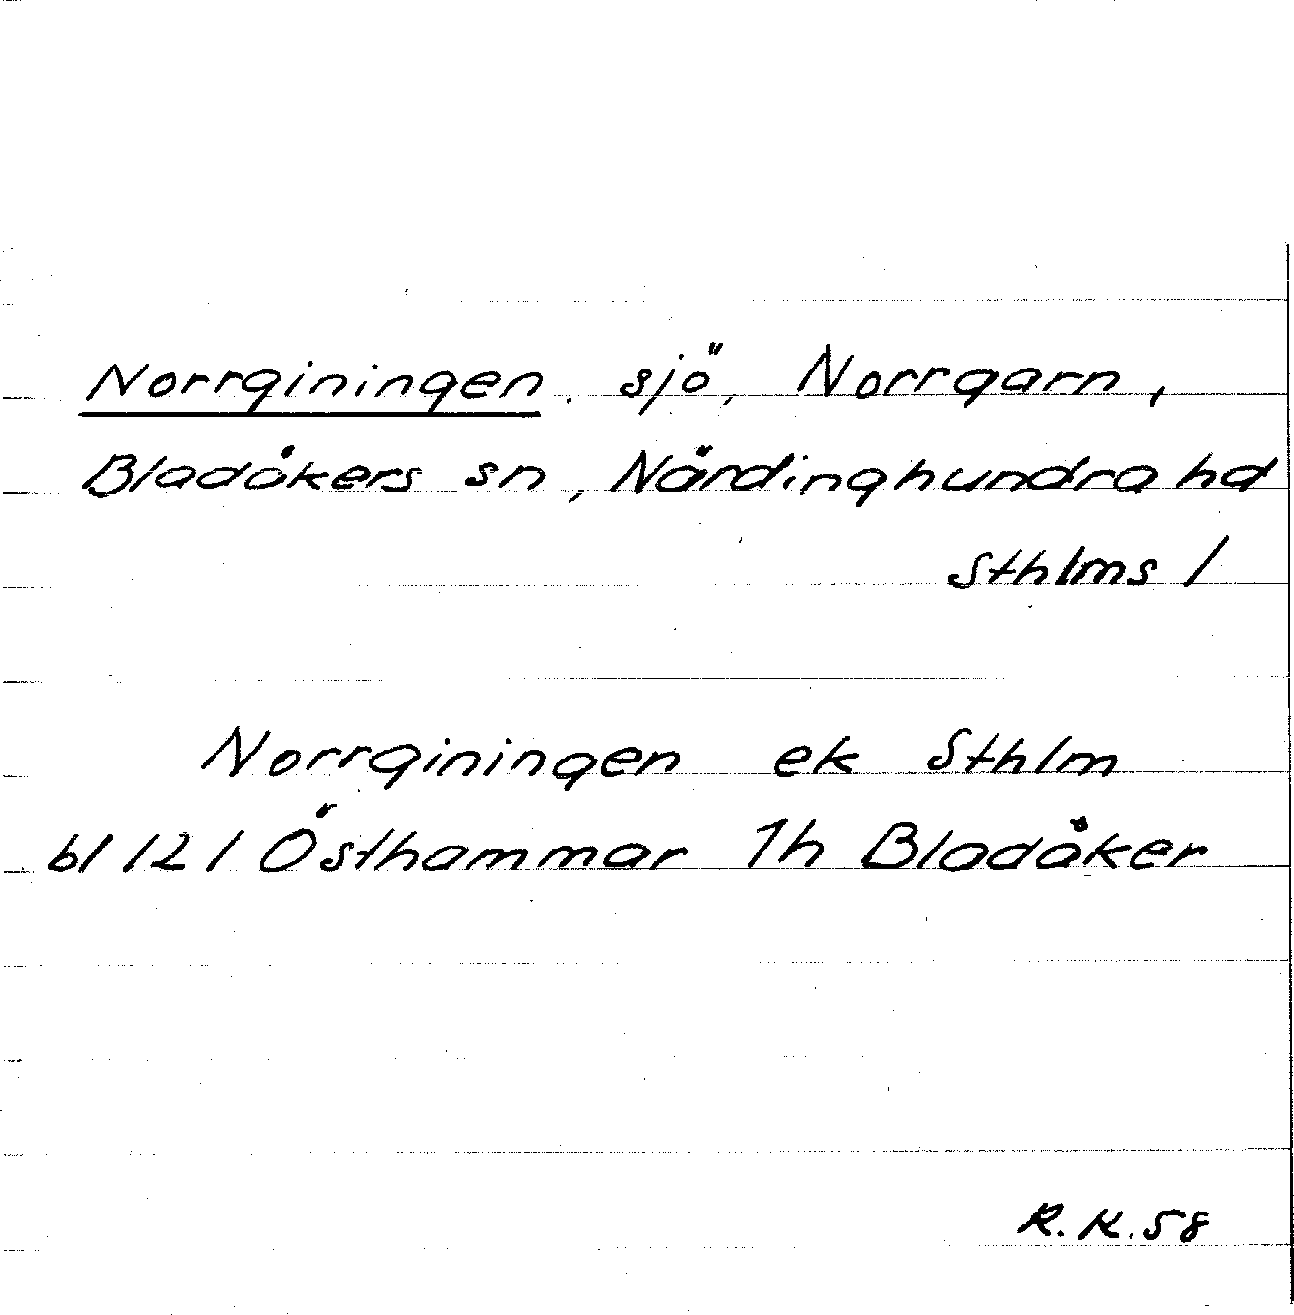 Norrginingen, sjö, Norrgarn,
Bladåkers sn, Närdinghundra hd
Sthlms l
Norrginingen ek Sthlm
bl 121 Östhammar 1h Bladåker
R.K.58